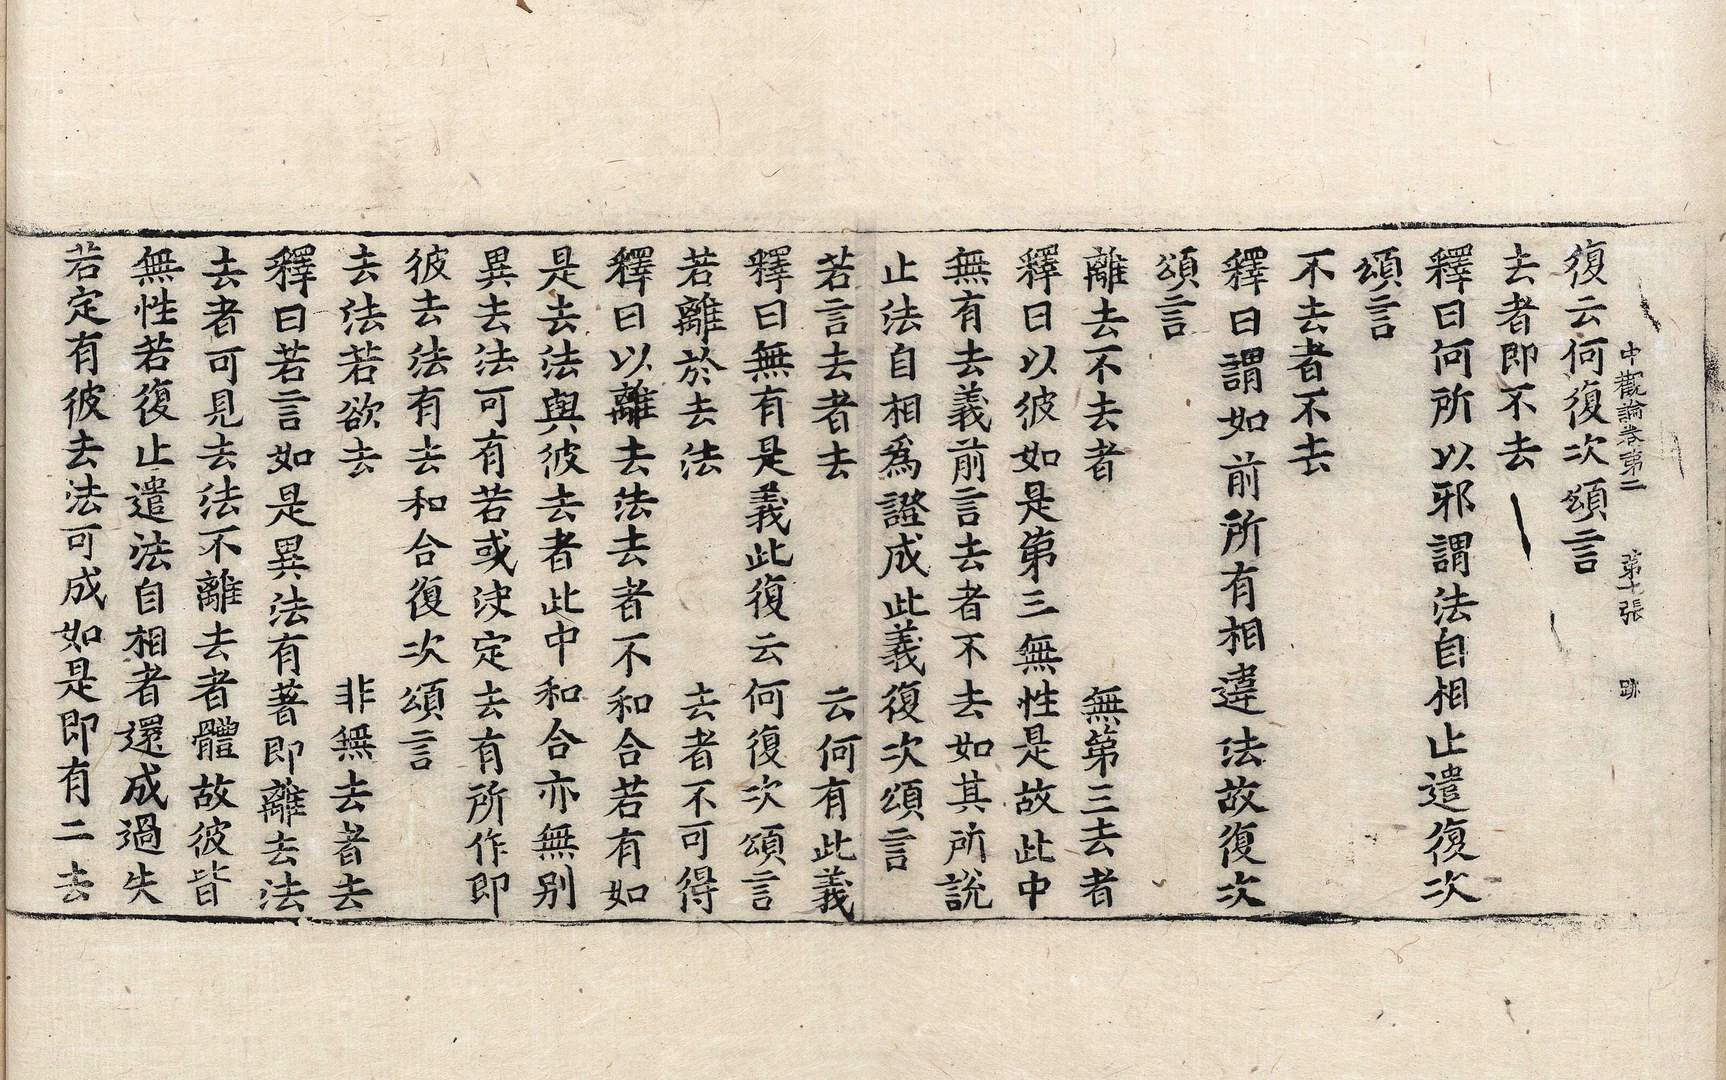 中觀論卷第二 第七張 跡
復云何復次頌言
去者即不去
釋曰何所以邪謂法自相止遣復次
頌言
不去者不去
釋曰謂如前所有相違法故復次
頌言
離去不去者 無第三去者
釋曰以彼如是第三無性是故此中
無有去義前言去者不去如其所說
止法自相爲證成此義復次頌言
若言去者去 云何有此義
釋曰無有是義此復云何復次頌言
若離於去法 去者不可得
釋曰以離去法去者不和合若有如
是去法與彼去者此中和合亦無別
異去法可有若或決定去有所作即
彼去法有去和合復次頌言
去法若欲去 非無去者去
釋曰若言如是異法有著即離去法
去者可見去法不離去者體故彼皆
無性若復止遣法自相者還成過失
若定有彼去法可成如是即有二去